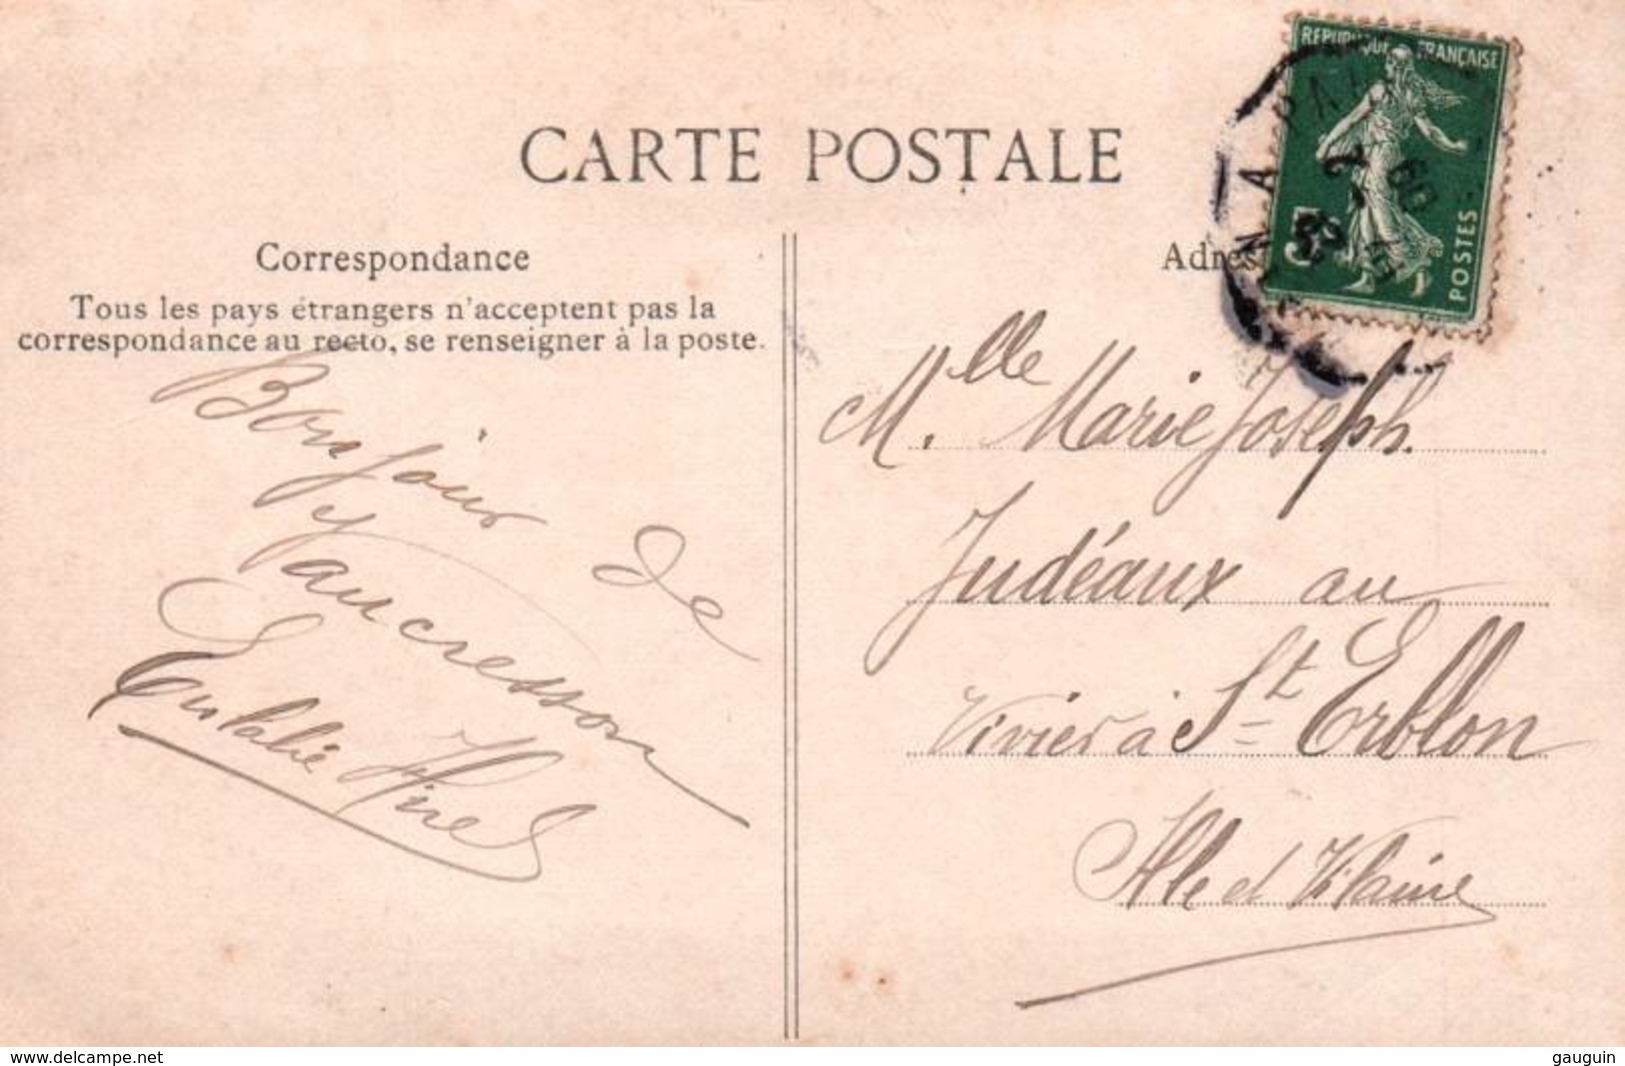 CARTE POSTALE
Correspondance
Tous les pays étrangers n'acceptent pas la
correspondance au recto, se renseigner à la poste.
Bonjour de
Vaucresson
Eulalie Hinel
RÉPUBLIQUE FRANÇAISE
POSTES
5
Adres
Mlle Marie Joseph.
Judéaux au
Vivier à St Erblon
Ille et Vilaine
www.delcampe.net
gauguin